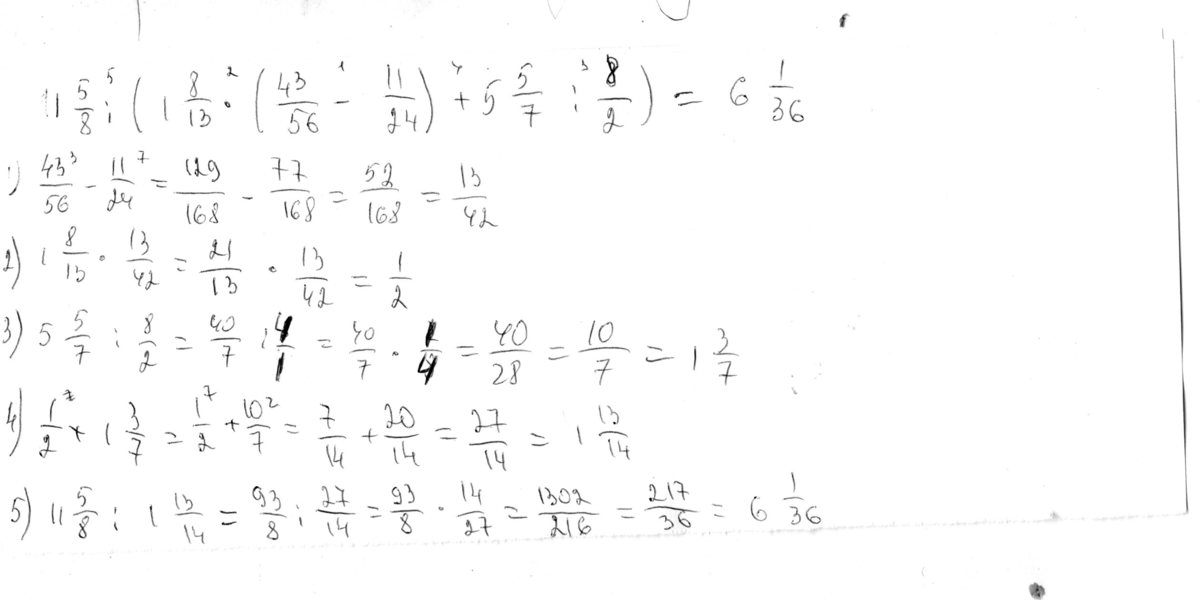 11 5/8 : (1 8/13 · (43/56 - 11/24) + 5 5/7 : 8/2) = 6 1/36
1) 43/56 - 11/24 = 129/168 - 77/168 = 52/168 = 13/42
2) 1 8/13 · 13/42 = 21/13 · 13/42 = 1/2
3) 5 5/7 : 8/2 = 40/7 : 4/1 = 40/7 · 1/4 = 40/28 = 10/7 = 1 3/7
4) 1/2 + 1 3/7 = 1/2 + 10/7 = 7/14 + 20/14 = 27/14 = 1 13/14
5) 11 5/8 : 1 13/14 = 93/8 : 27/14 = 93/8 · 14/27 = 1302/216 = 217/36 = 6 1/36